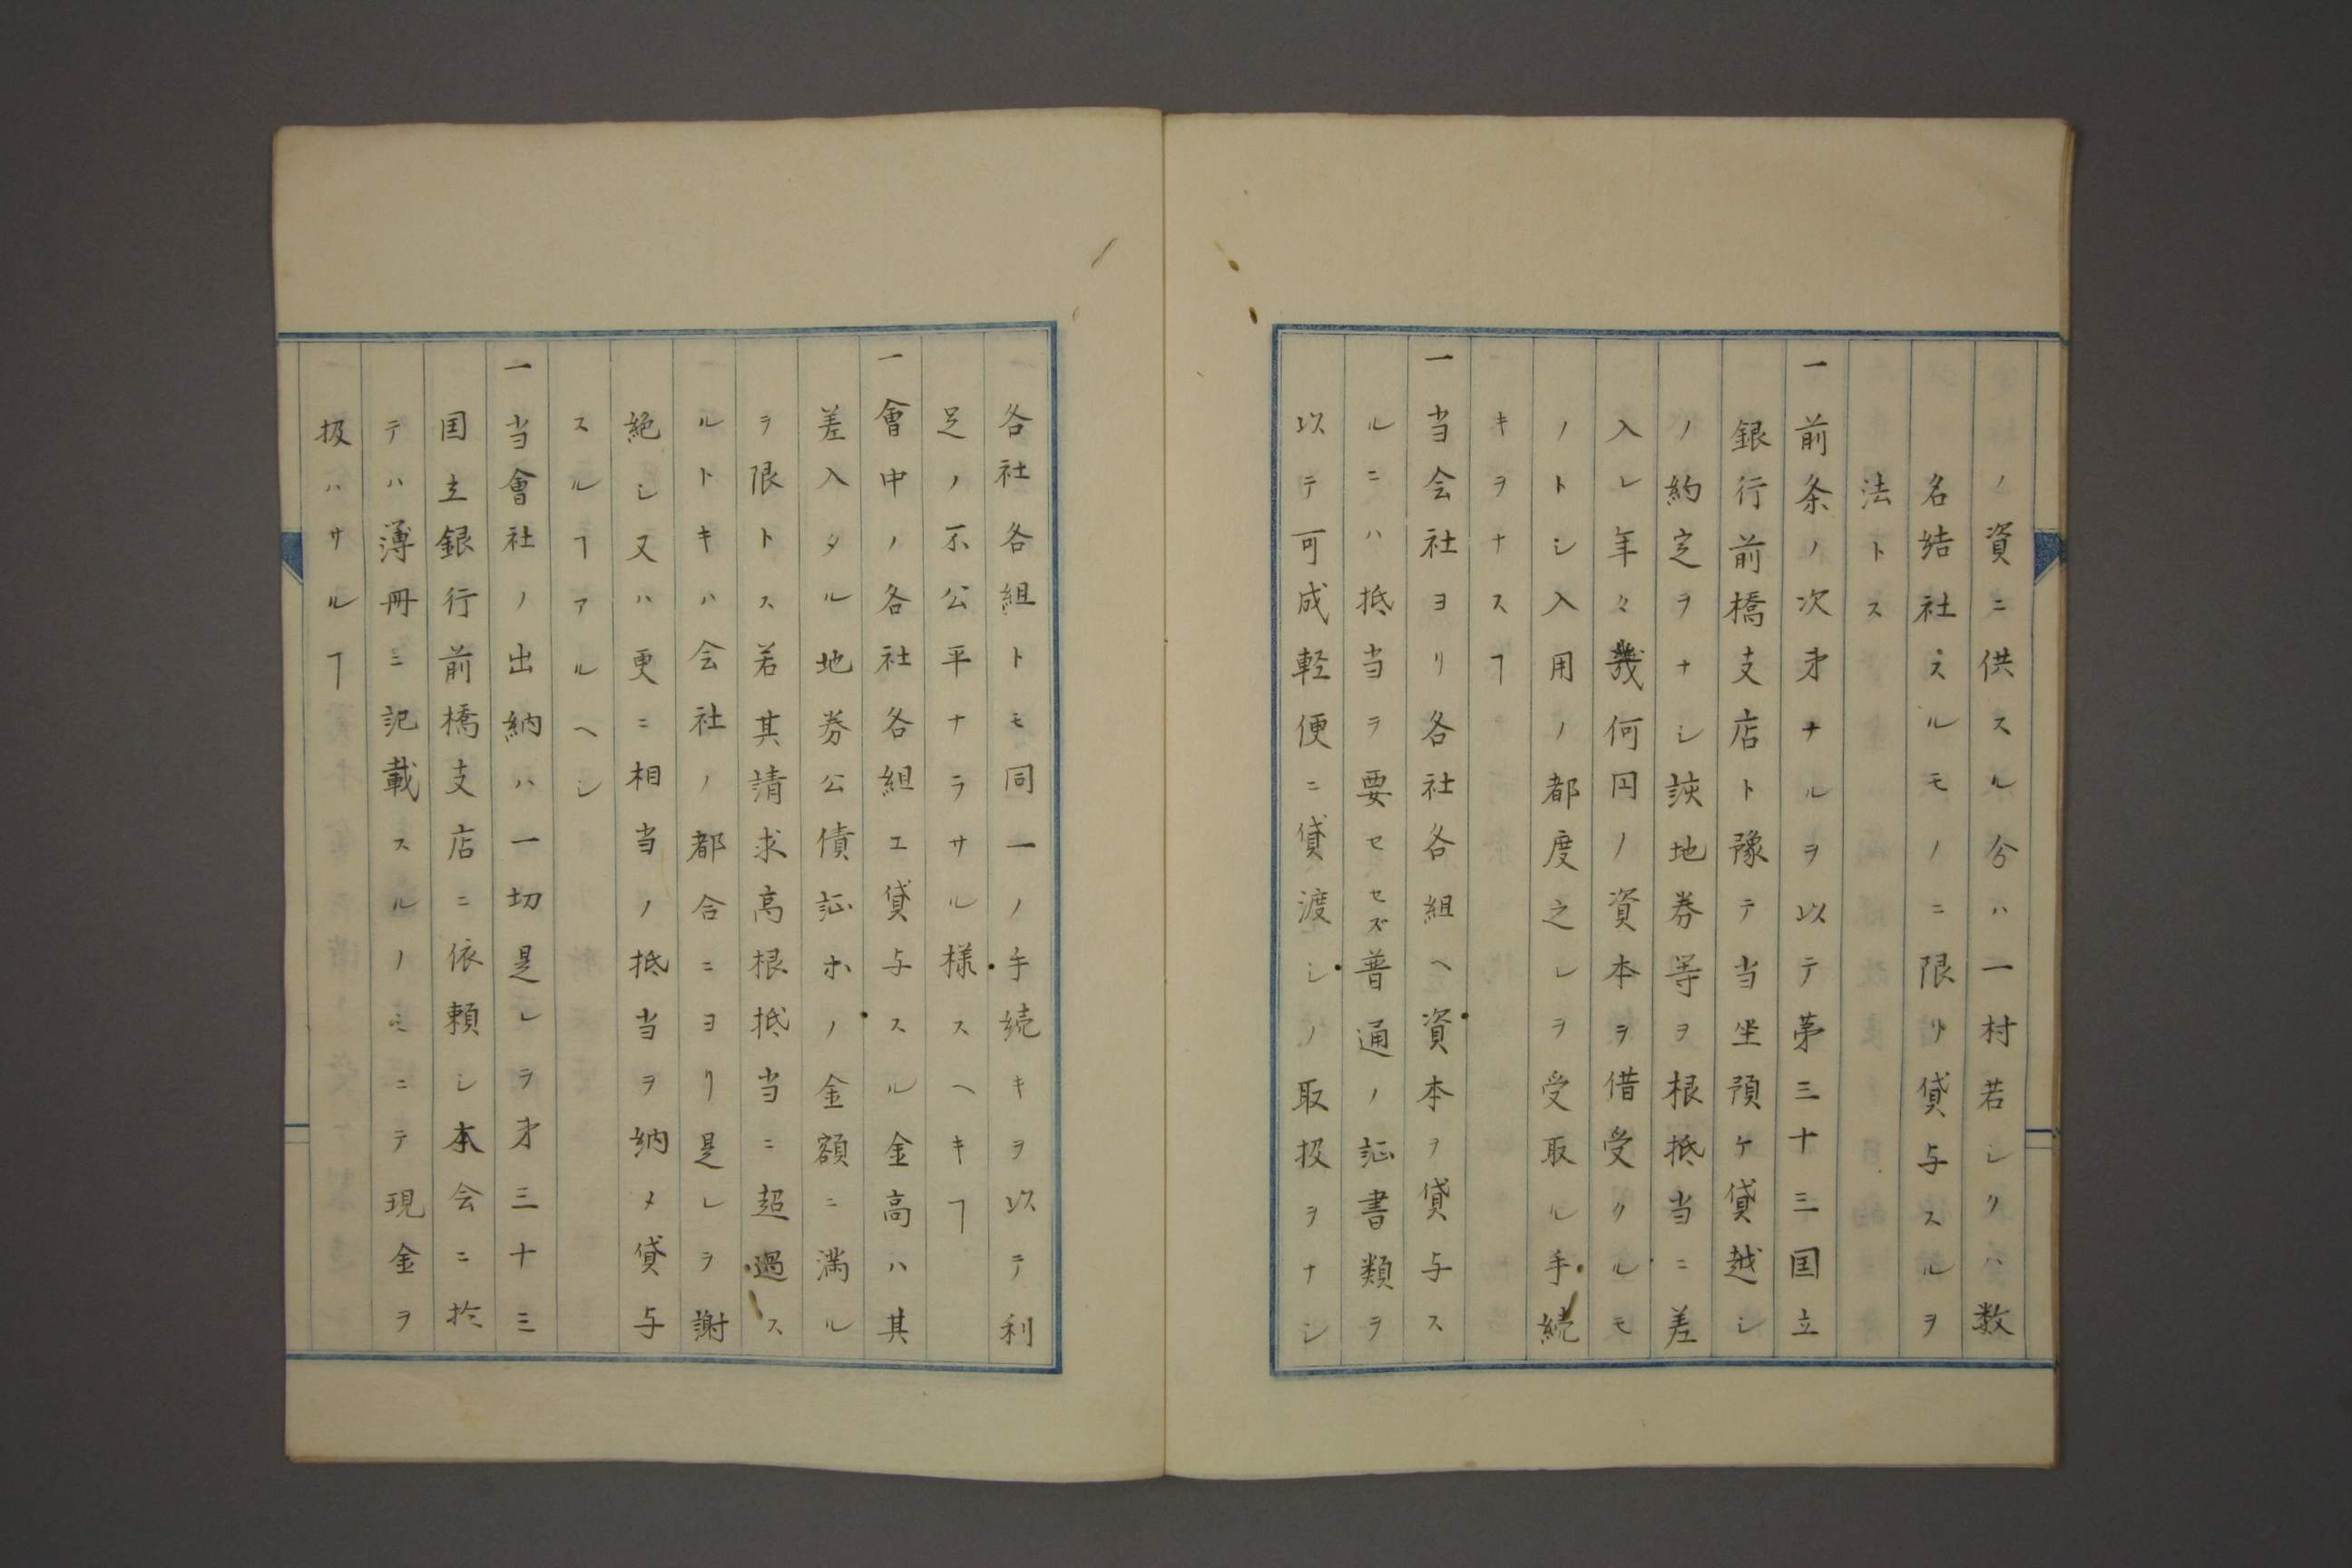 ノ資ニ供スル分ハ一村若シクハ数
名結社スルモノニ限リ貸与スルヲ
法トス
一前条ノ次才ナルヲ以テ茅三十三国立
銀行前橋支店ト豫テ当坐預ケ貸越シ
ノ約定ヲナシ該地券等ヲ根抵当ニ差
入レ年々幾何円ノ資本ヲ借受クルモ
ノトシ入用ノ都度之レヲ受取ル手続
キヲナスヿ
一当会社ヨリ各社各組ヘ資本ヲ貸与ス
ルニハ抵当ヲ要セセズ普通ノ証書類ヲ
以テ可成軽便ニ貸渡シノ取扱ヲナシ
各社各組トモ同一ノ手続キヲ以テ利
足ノ不公平ナラサル様スヘキヿ
一會中ノ各社各組エ貸与スル金高ハ其
差入タル地券公債証ホノ金額ニ満ル
ヲ限トス若其請求高根抵当ニ超過ス
ルトキハ会社ノ都合ニヨリ是レヲ謝
絶シ又ハ更ニ相当ノ抵当ヲ納メ貸与
スルヿアルヘシ
一当會社ノ出納ハ一切是レヲ才三十三
国立銀行前橋支店ニ依頼シ本会ニ於
テハ薄冊ニ記載スルノミニテ現金ヲ
扱ハサルヿ